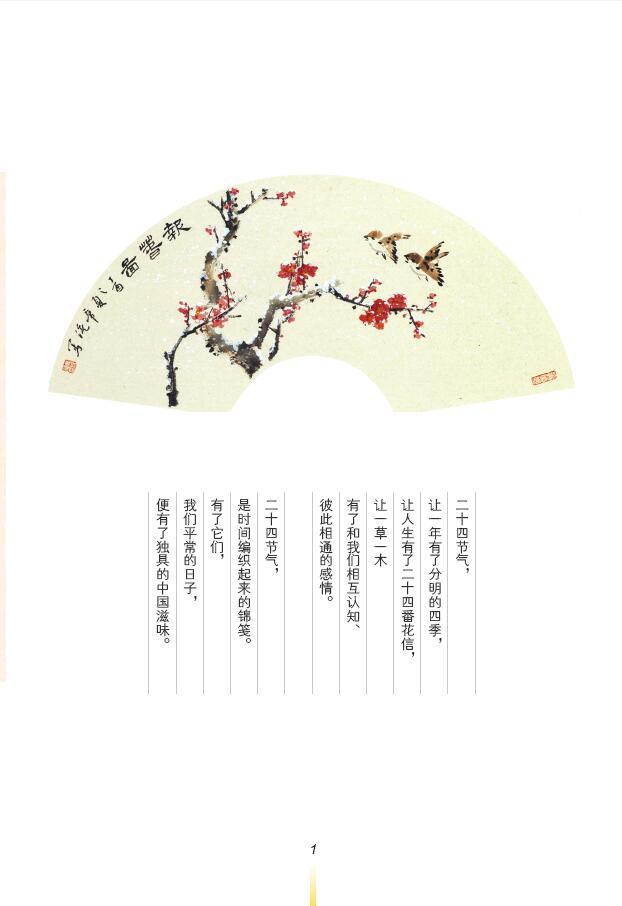 報春圖
二十四节气，
让一年有了分明的四季，
让人生有了二十四番花信，
让一草一木
有了和我们相互认知、
彼此相通的感情。
二十四节气，
是时间编织起来的锦笺。
有了它们，
我们平常的日子，
便有了独具的中国滋味。
1